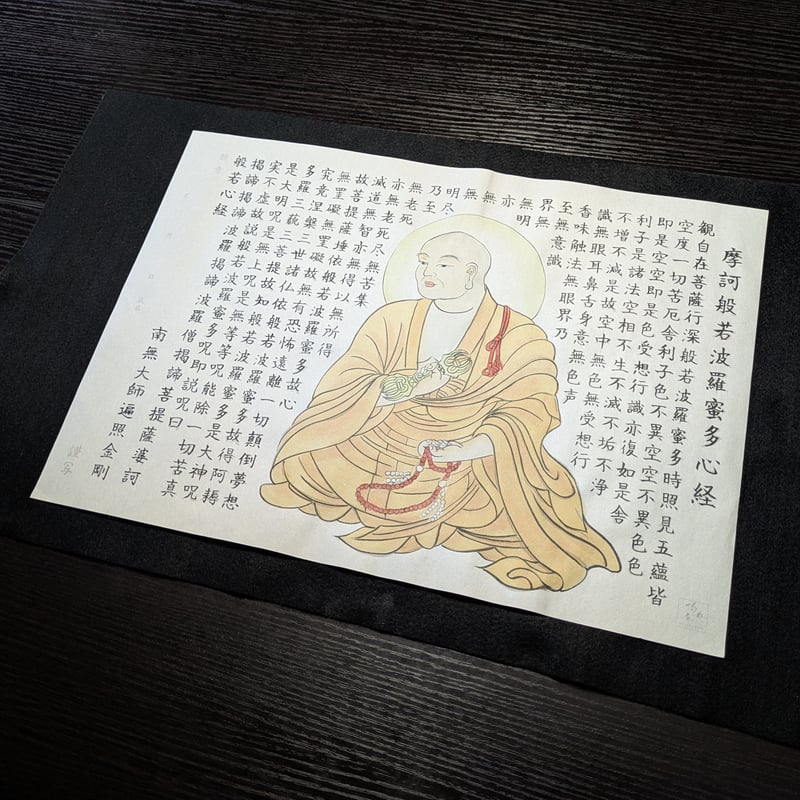 摩訶般若波羅蜜多心経
観自在菩薩行深般若波羅蜜多時照見五蘊皆
空度一切苦厄舎利子色不異空空不異色色
即是空空即是色受想行識亦復如是舎
利子是諸法空相不生不滅不垢不浄
不増不減是故空中無色無受想行
識無眼耳鼻舌身意無色声
香味触法無眼界乃
至無意識
界無
無明
亦
無
無
明尽
乃至
無老死
亦無老死尽無苦集
滅道無智亦無得以無所得
故菩提薩埵依般若波羅蜜多故心
無罣礙無罣礙故無有恐怖遠離一切顛倒夢想
究竟涅槃三世諸仏依般若波羅蜜多故得阿耨
多羅三藐三菩提故知般若波羅蜜多是大神呪
是大明呪是無上呪是無等等呪能除一切苦真
実不虚故説般若波羅蜜多呪即説呪曰
掲諦掲諦波羅掲諦波羅僧掲諦菩提薩婆訶
般若心経
南無大師遍照金剛
謹写